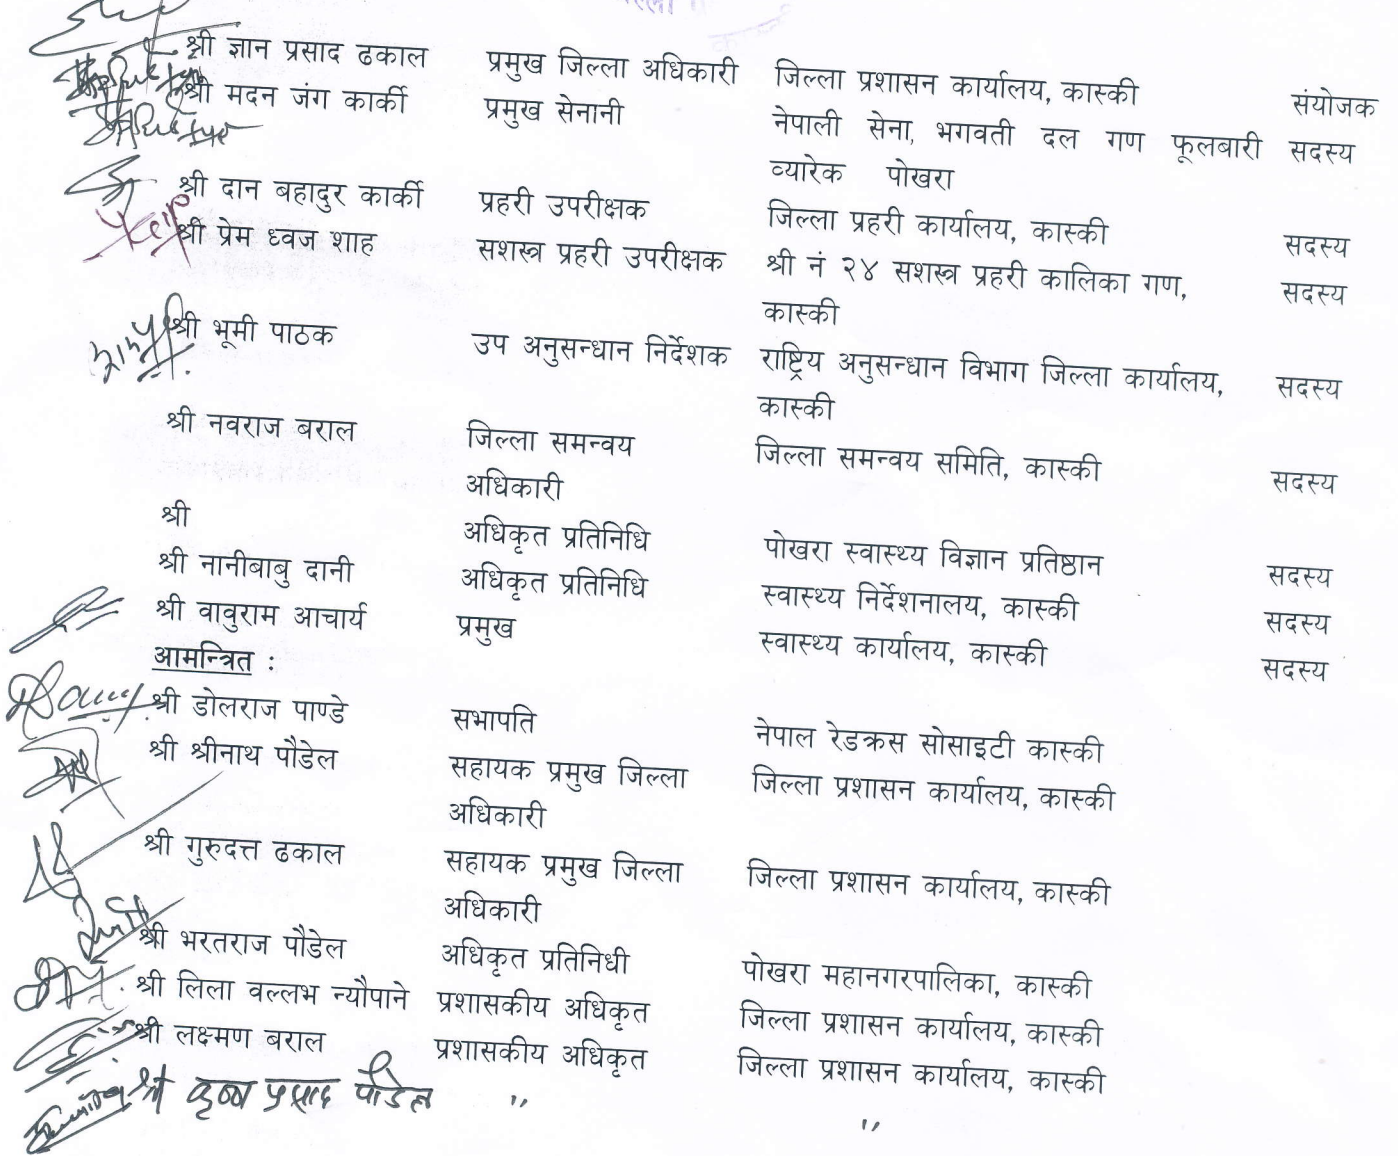 श्री ज्ञान प्रसाद ढकाल प्रमुख जिल्ला अधिकारी जिल्ला प्रशासन कार्यालय, कास्की संयोजक
श्री मदन जंग कार्की प्रमुख सेनानी नेपाली सेना, भगवती दल गण फूलबारी सदस्य
व्यारेक पोखरा
श्री दान बहादुर कार्की प्रहरी उपरीक्षक जिल्ला प्रहरी कार्यालय, कास्की सदस्य
श्री प्रेम ध्वज शाह सशस्त्र प्रहरी उपरीक्षक श्री नं २४ सशस्त्र प्रहरी कालिका गण, सदस्य
कास्की
श्री भूमी पाठक उप अनुसन्धान निर्देशक राष्ट्रिय अनुसन्धान विभाग जिल्ला कार्यालय, सदस्य
कास्की
श्री नवराज बराल जिल्ला समन्वय जिल्ला समन्वय समिति, कास्की सदस्य
अधिकारी
श्री अधिकृत प्रतिनिधि पोखरा स्वास्थ्य विज्ञान प्रतिष्ठान सदस्य
श्री नानीबाबु दानी अधिकृत प्रतिनिधि स्वास्थ्य निर्देशनालय, कास्की सदस्य
श्री वावुराम आचार्य प्रमुख स्वास्थ्य कार्यालय, कास्की सदस्य
आमन्त्रित :
श्री डोलराज पाण्डे सभापति नेपाल रेडक्रस सोसाइटी कास्की
श्री श्रीनाथ पौडेल सहायक प्रमुख जिल्ला जिल्ला प्रशासन कार्यालय, कास्की
अधिकारी
श्री गुरुदत्त ढकाल सहायक प्रमुख जिल्ला जिल्ला प्रशासन कार्यालय, कास्की
अधिकारी
श्री भरतराज पौडेल अधिकृत प्रतिनिधी पोखरा महानगरपालिका, कास्की
श्री लिला वल्लभ न्यौपाने प्रशासकीय अधिकृत जिल्ला प्रशासन कार्यालय, कास्की
श्री लक्ष्मण बराल प्रशासकीय अधिकृत जिल्ला प्रशासन कार्यालय, कास्की
श्री कृष्ण प्रसाद पौडेल " "